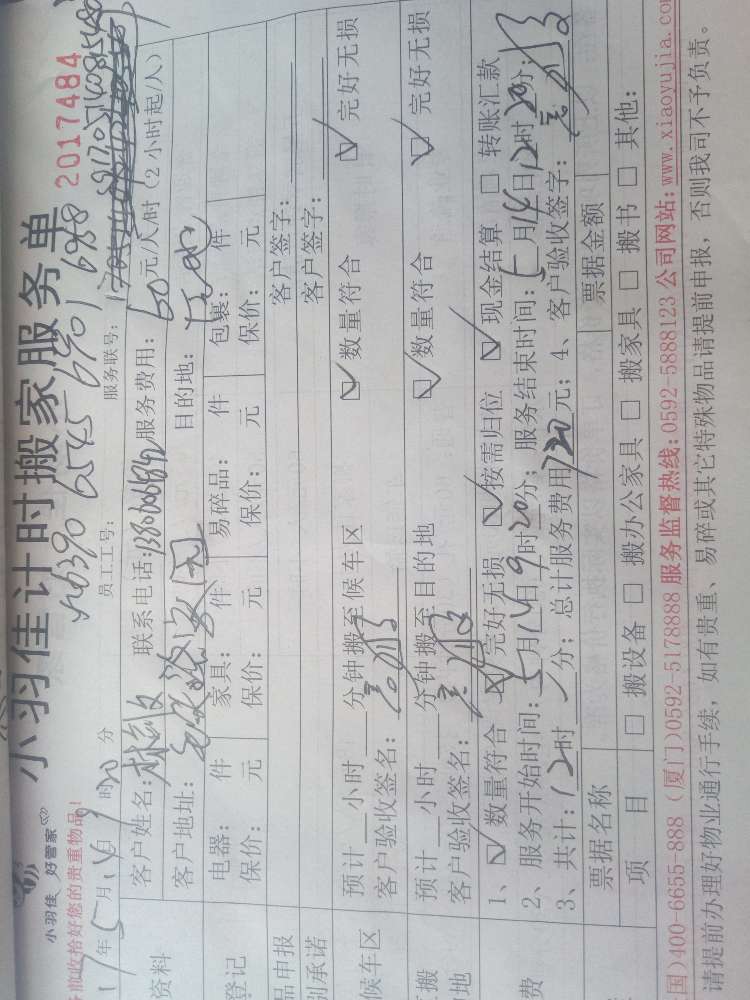 小羽佳计时搬家服务单
2017484
小羽佳 好管家
收拾好您的贵重物品!
员工工号:
服务联号:
17年5月14日9时20分
资料
客户姓名: 联系电话: 服务费用:60元/人/时(2小时起/人)
客户地址: 目的地:
登记
电器: 件 家具: 件 易碎品: 件 包裹: 件
保价: 元 保价: 元 保价: 元 保价: 元
品申报 客户签字:
别承诺 客户签字:
候车区
预计 小时 分钟搬至候车区 数量符合 完好无损
客户验收签名:
搬
地
预计 小时 分钟搬至目的地 数量符合 完好无损
客户验收签名:
费
1、 数量符合 完好无损 按需归位 现金结算 转账汇款
2、服务开始时间:5月14日9时20分; 服务结束时间:5月14日12时20分;
3、共计:12时 分; 总计服务费用720元; 4、客户验收签字:
票据名称 票据金额
项 目 搬设备 搬办公家具 搬家具 搬书 其他:
国)400-6655-888 (厦门)0592-5178888 服务监督热线:0592-5888123 公司网站: www.xiaoyujia.com
请提前办理好物业通行手续, 如有贵重、易碎或其它特殊物品请提前申报, 否则我司不予负责。